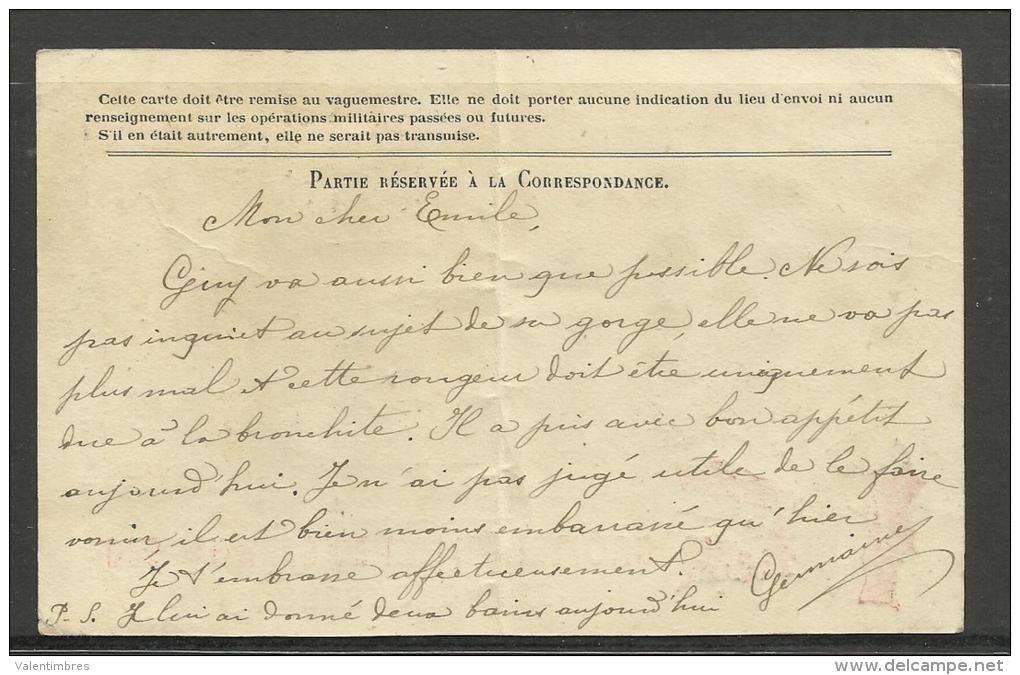 Cette carte doit être remise au vaguemestre. Elle ne doit porter aucune indication du lieu d'envoi ni aucun
renseignement sur les opérations militaires passées ou futures.
S'il en était autrement, elle ne serait pas transmise.
PARTIE RÉSERVÉE À LA CORRESPONDANCE.
Mon cher Emile,
Guy va aussi bien que possible. Ne sois
pas inquiet au sujet de sa gorge elle ne va pas
plus mal et cette rougeur doit être uniquement
due à la bronchite. Il a pris avec bon appétit
aujourd'hui. Je n'ai pas jugé utile de le faire
vomir, il est bien moins embarrassé qu'hier
Je t'embrasse affectueusement.
Germaine
P.S. Je lui ai donné deux bains aujourd'hui
Valentimbres
www.delcampe.net